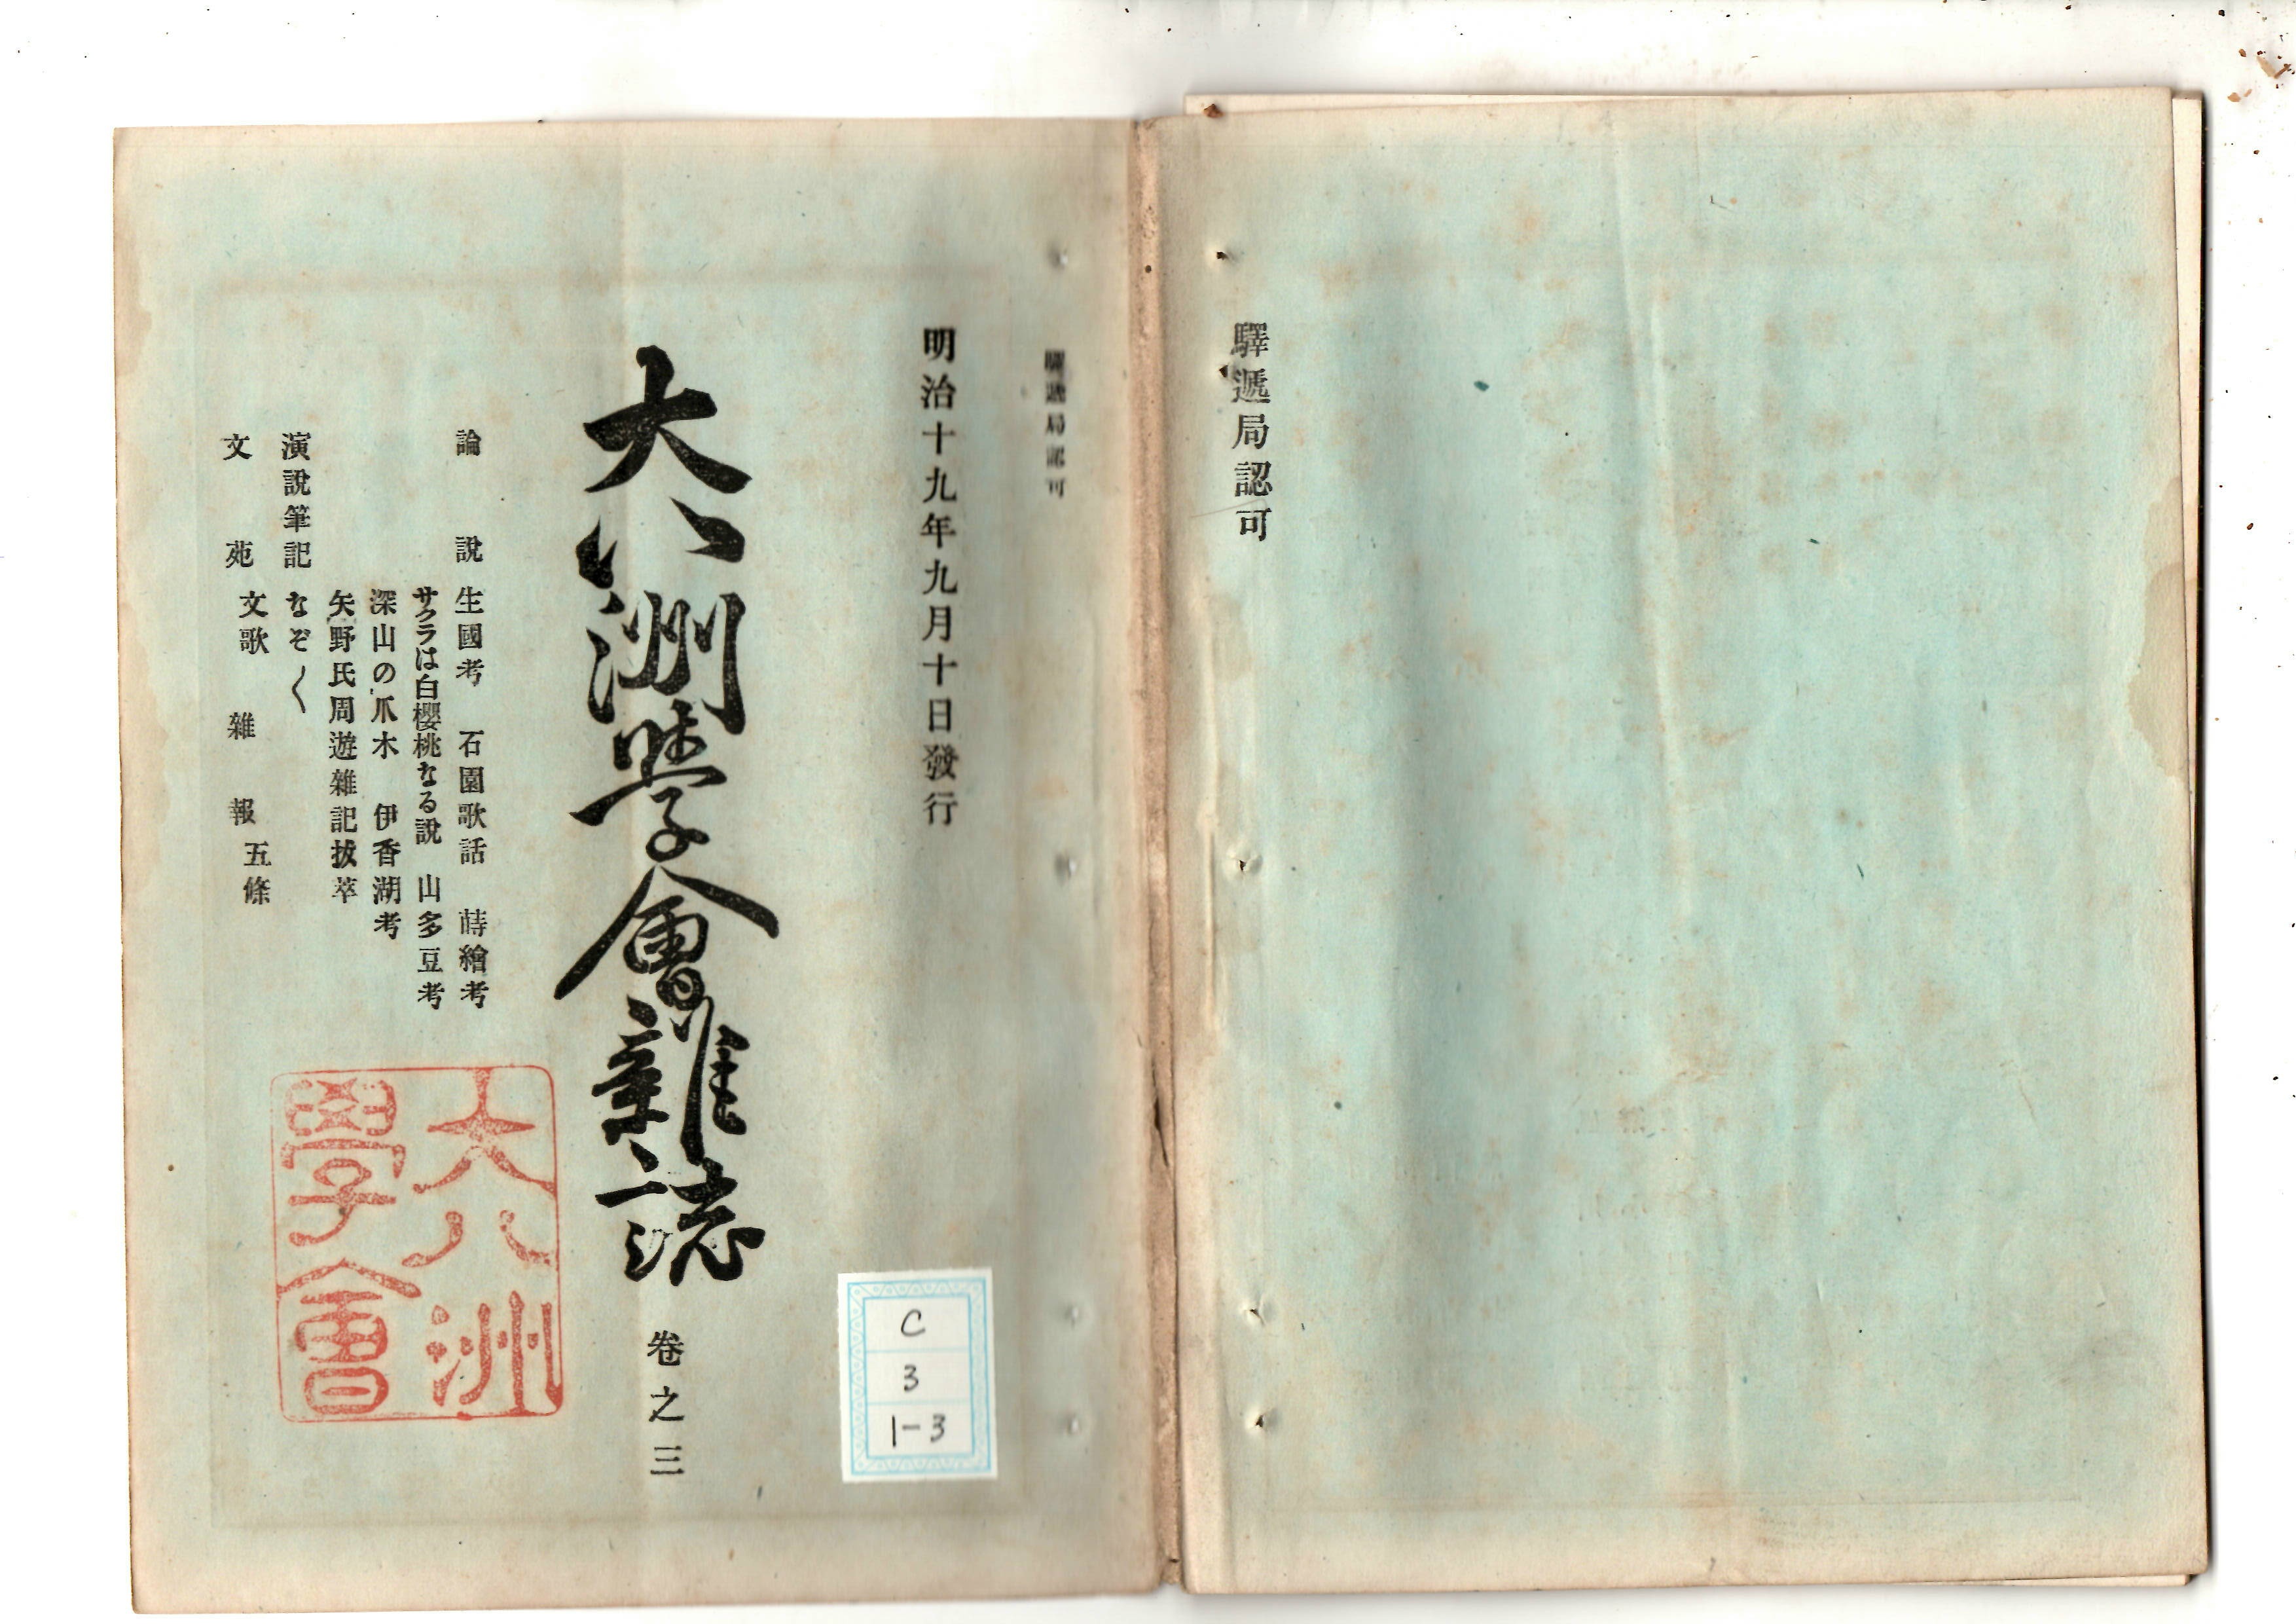 驛遞局認可
驛遞局認可
明治十九年九月十日發行
大八洲學會雜誌
卷之三
論說 生國考 石園歌話 蒔繪考
サクラは白櫻桃なる說 山多豆考
深山の爪木 伊香湖考
矢野氏周遊雜記拔萃
演說筆記 なぞ〱
文苑 文歌 雜報 五條
大八洲
學會
C
3
1-3